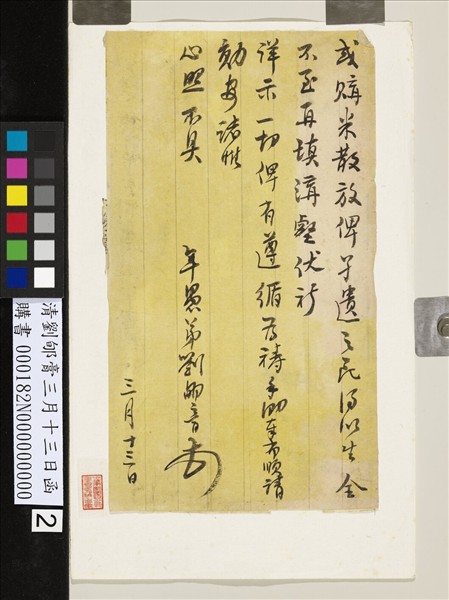 或購米散放俾孑遺之民得以生全
不至再填溝壑伏祈
詳示一切俾有遵循為禱手泐奉布順請
勛安諸惟
心照不具
年愚弟劉郇膏
三月十三日
清劉郇膏三月十三日函
購書 000182N000000000
2